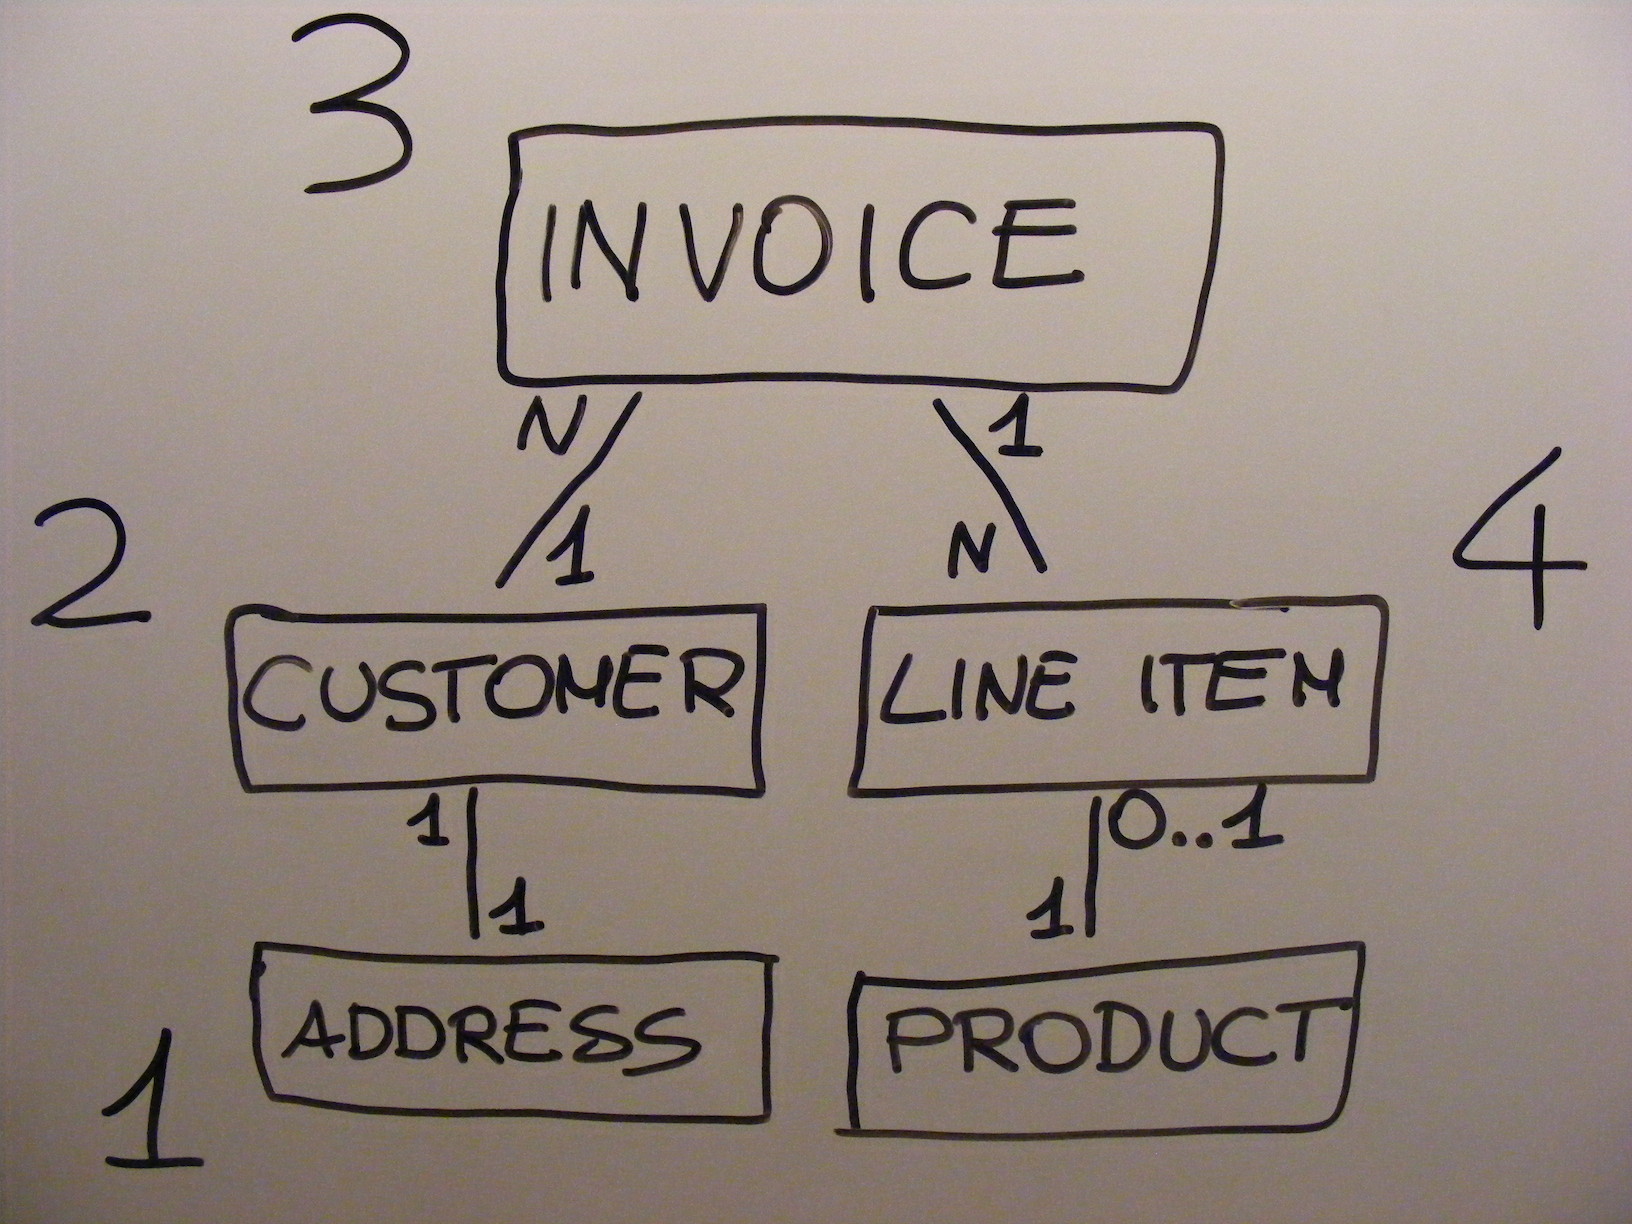 3
INVOICE
N 1
1 N
2 4
CUSTOMER LINE ITEM
1 0..1
1 1
ADDRESS PRODUCT
1